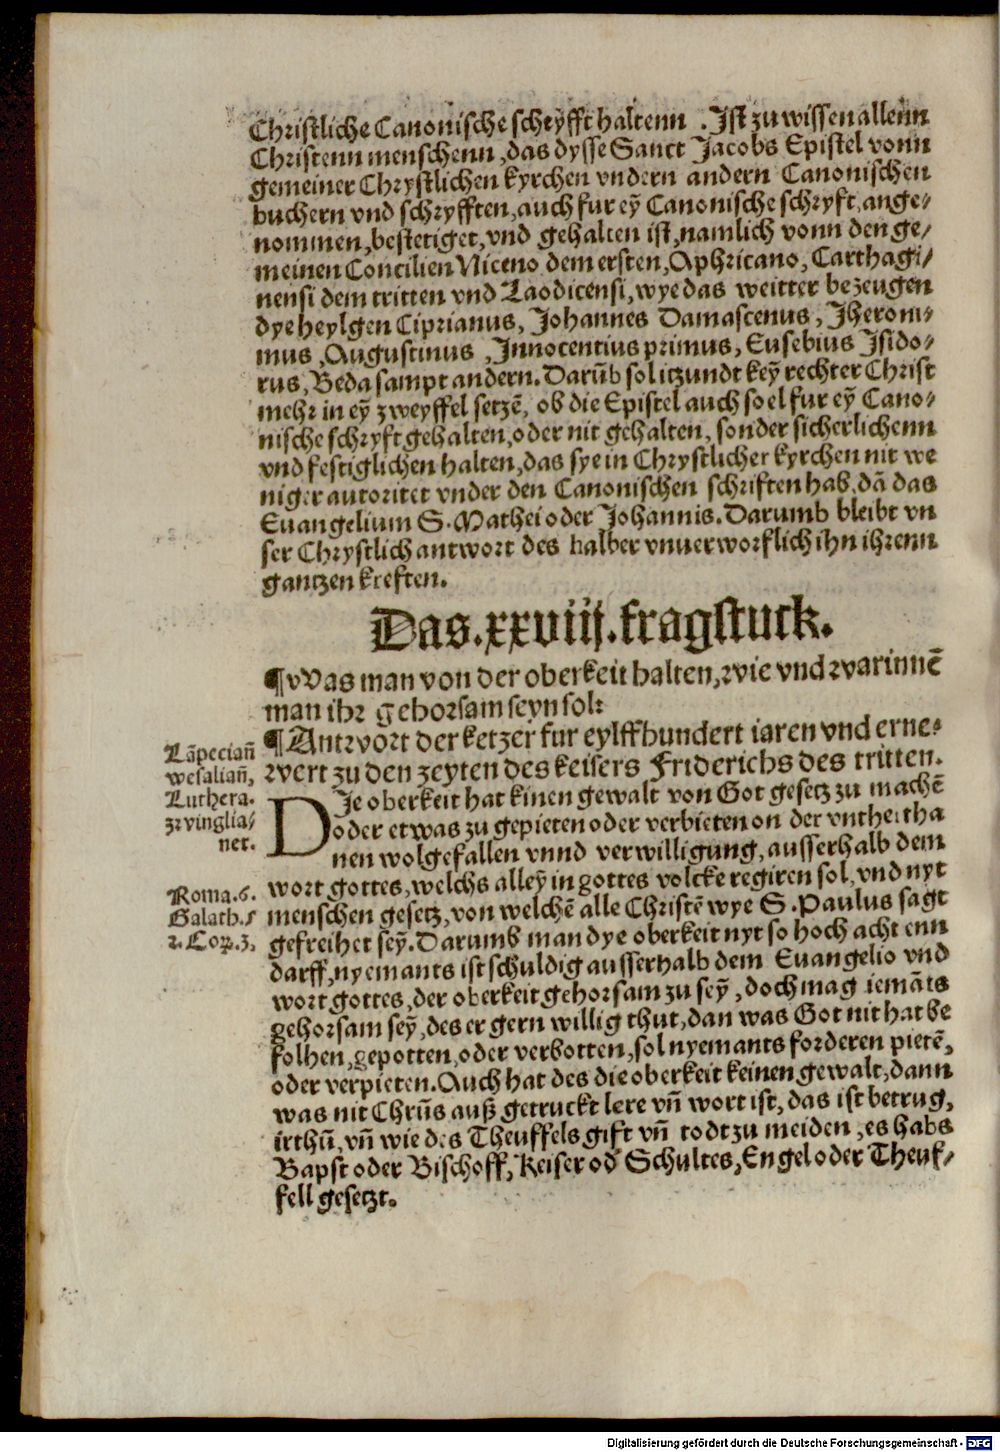 Christliche Canonische schryfft haltenn . Ist zu wissen allenn
Christenn menschenn, das dysse Sanct Jacobs Epistel vonn
gemeiner Chrystlichen kyrchen vndern andern Canonischen
buchern vnd schryfften, auch fur eỹ Canonische schryft, ange⸗
nommen, bestetiget, vnd gehalten ist, namlich vonn den ge/
meinen Concilien Niceno dem ersten, Aphricano, Carthagi/
nensi dem tritten vnd Laodicensi, wye das weitter bezeugen
dye heylgen Ciprianus, Johannes Damascenus, Jheroni⸗
mus, Augustinus, Innocentius primus, Eusebius Isido⸗
rus, Beda sampt andern. Darũb sol itzundt keỹ rechter Christ
mehr in eỹ zweyffel setzẽ, ob die Epistel auch so el fur eỹ Cano⸗
nische schryft gehalten, oder nit gehalten, sonder sicherlichenn
vnd festiglichen halten, das sye in Chrystlicher kyrchen nit we
niger autoritet vnder den Canonischen schriften hab, dã das
Euangelium S. Mathei oder Johannis. Darumb bleibt vn
ser Chrystlich antwort des halber vnuerworflich ihn ihrenn
gantzen kreften.
Das.xxviij.fragstuck.
¶ Was man von der oberkeit halten, wie vnd warinnẽ
man ihr gehorsam seyn sol:
¶ Antwort der ketzer fur eylffhundert iaren vnd erne⸗
wert zu den zeyten des keisers Friderichs des tritten.
Lãpeciañ
wesaliañ,
Luthera.
zwinglia/
ner.
DIe oberkeit hat kinen gewalt von Got gesetz zu machẽ
oder etwas zu gepieten oder verbieten on der vntherтha
nen wolgefallen vnnd verwilligung, ausserhalb dem
wort gottes, welchs alleỹ in gottes volcke regiren sol, vnd nyt
menschen gesetz, von welchẽ alle Christẽ wye S. Paulus sagt
gefreihet seỹ. Darumb man dye oberkeit nyt so hoch acht enn
darff, nyemants ist schuldig ausserhalb dem Euangelio vnd
wort gottes, der oberkeit gehorsam zu seỹ, doch mag iemãts
gehorsam seỹ, des er gern willig thut, dan was Got nit hat be
folhen, gepotten, oder verbotten, sol nyemants forderen pietẽ,
oder verpieten. Auch hat des die oberkeit keinen gewalt, dann
was nit Chrũs auß getruckt lere vñ wort ist, das ist betrug,
irthũ, vñ wie des Theuffels gift vñ todt zu meiden, es habs
Bapst oder Bischoff, Keiser od̓ Schultes, Engel oder Theuf⸗
fell gesetzt.
Roma.6.
Galath.5
2.Cor.3,
Digitalisierung gefördert durch die Deutsche Forschungsgemeinschaft - DFG